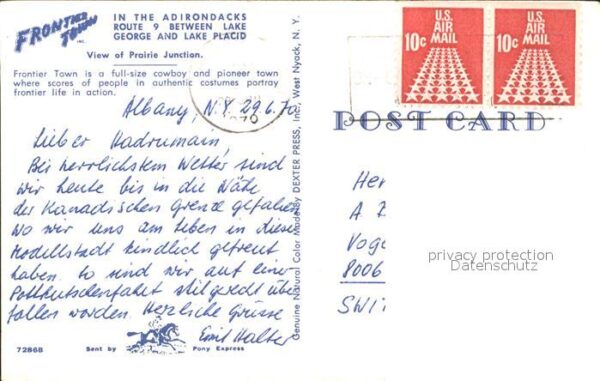 FRONTIER TOWN INC.
IN THE ADIRONDACKS
ROUTE 9 BETWEEN LAKE
GEORGE AND LAKE PLACID
View of Prairie Junction.
Frontier Town is a full-size cowboy and pioneer town
where scores of people in authentic costumes portray
frontier life in action.
Albany, N.Y. 29.6.70
Lieber Hadrumain,
Bei herrlichstem Wetter sind
wir heute bis in die Nähe
der Kanadischen Grenze gefahren
wo wir uns am Leben in dieser
Modellstadt kindlich gefreut
haben. So sind wir auf einer
Postkutschenfahrt stilgerecht über
fallen worden. Herzliche Grüsse
Emil Halter
72868
Sent by
Pony Express
Genuine Natural Color Made by DEXTER PRESS, Inc., West Nyack, N. Y.
U.S.
AIR
MAIL
10c
U.S.
AIR
MAIL
10c
POST CARD
Her
A
Voge
8006
SWI
privacy protection
Datenschutz